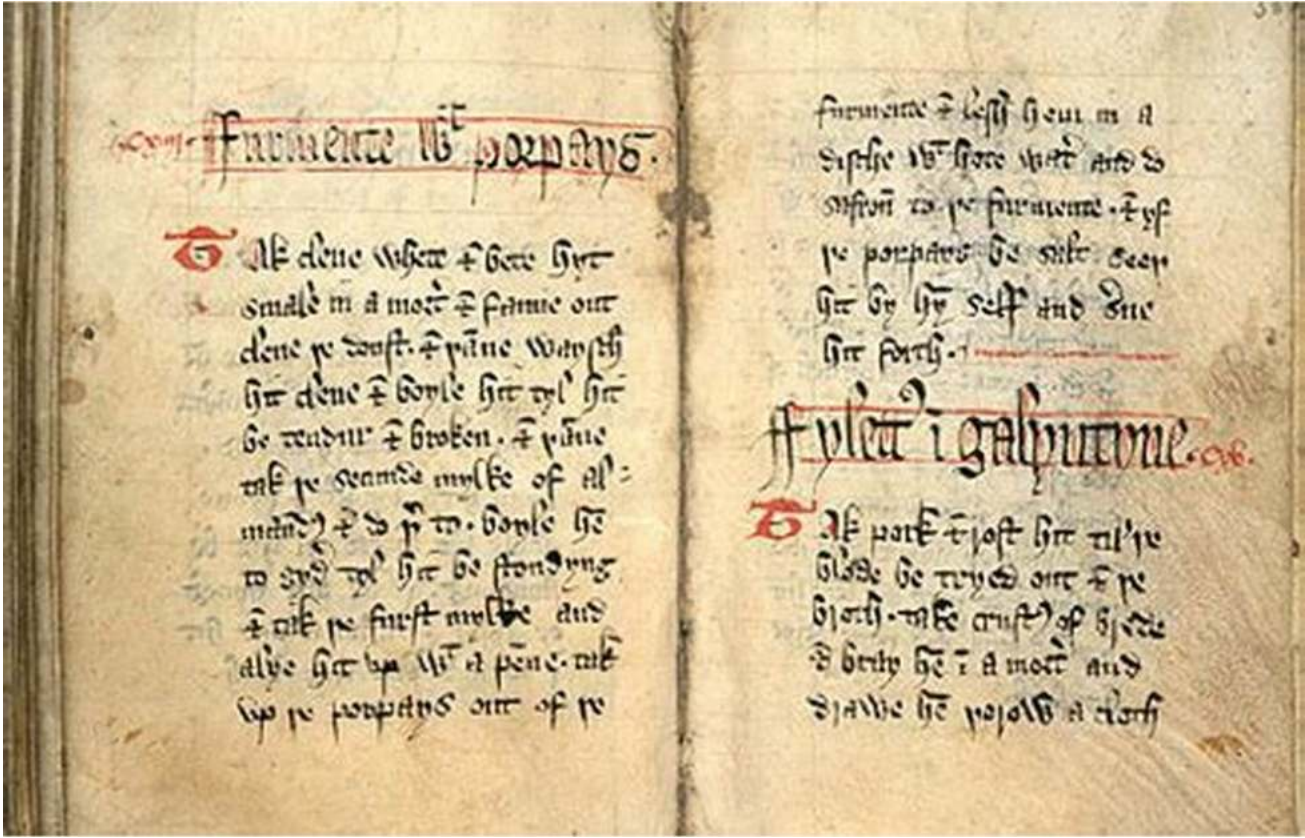 ffurmente wᵗ porpays.
Tak clene whete & bete hyt
smale in a mort̉ & fanne out
clene þe doust. & þāne waysch
hit clene & boyle hit tyl hit
be tendur & broken. & þāne
tak þe secunde mylke of al=
mandꝭ & do þ̉ to. boyle hē
to gyd̉ tyl hit be stondyng
& tak þe furst mylke and
alye hit vp wᵗ a pēne. tak
vp þe porpays out of þe
furmente & lesh hem in a
disshe wᵗ hote wat̉ and do
safron to þe furmente. & yf
þe porpays be salt seeþ
hit by hȳ self and s̉ue
hit forth.
ffylettꝭ ī galyntyne. .Cxv.
Tak pork & rost hit til þe
blode be tryed out & þe
broth. take crustꝭ of brede
& bray hē ī a mort̉ and
drawe hē þorow a cloth